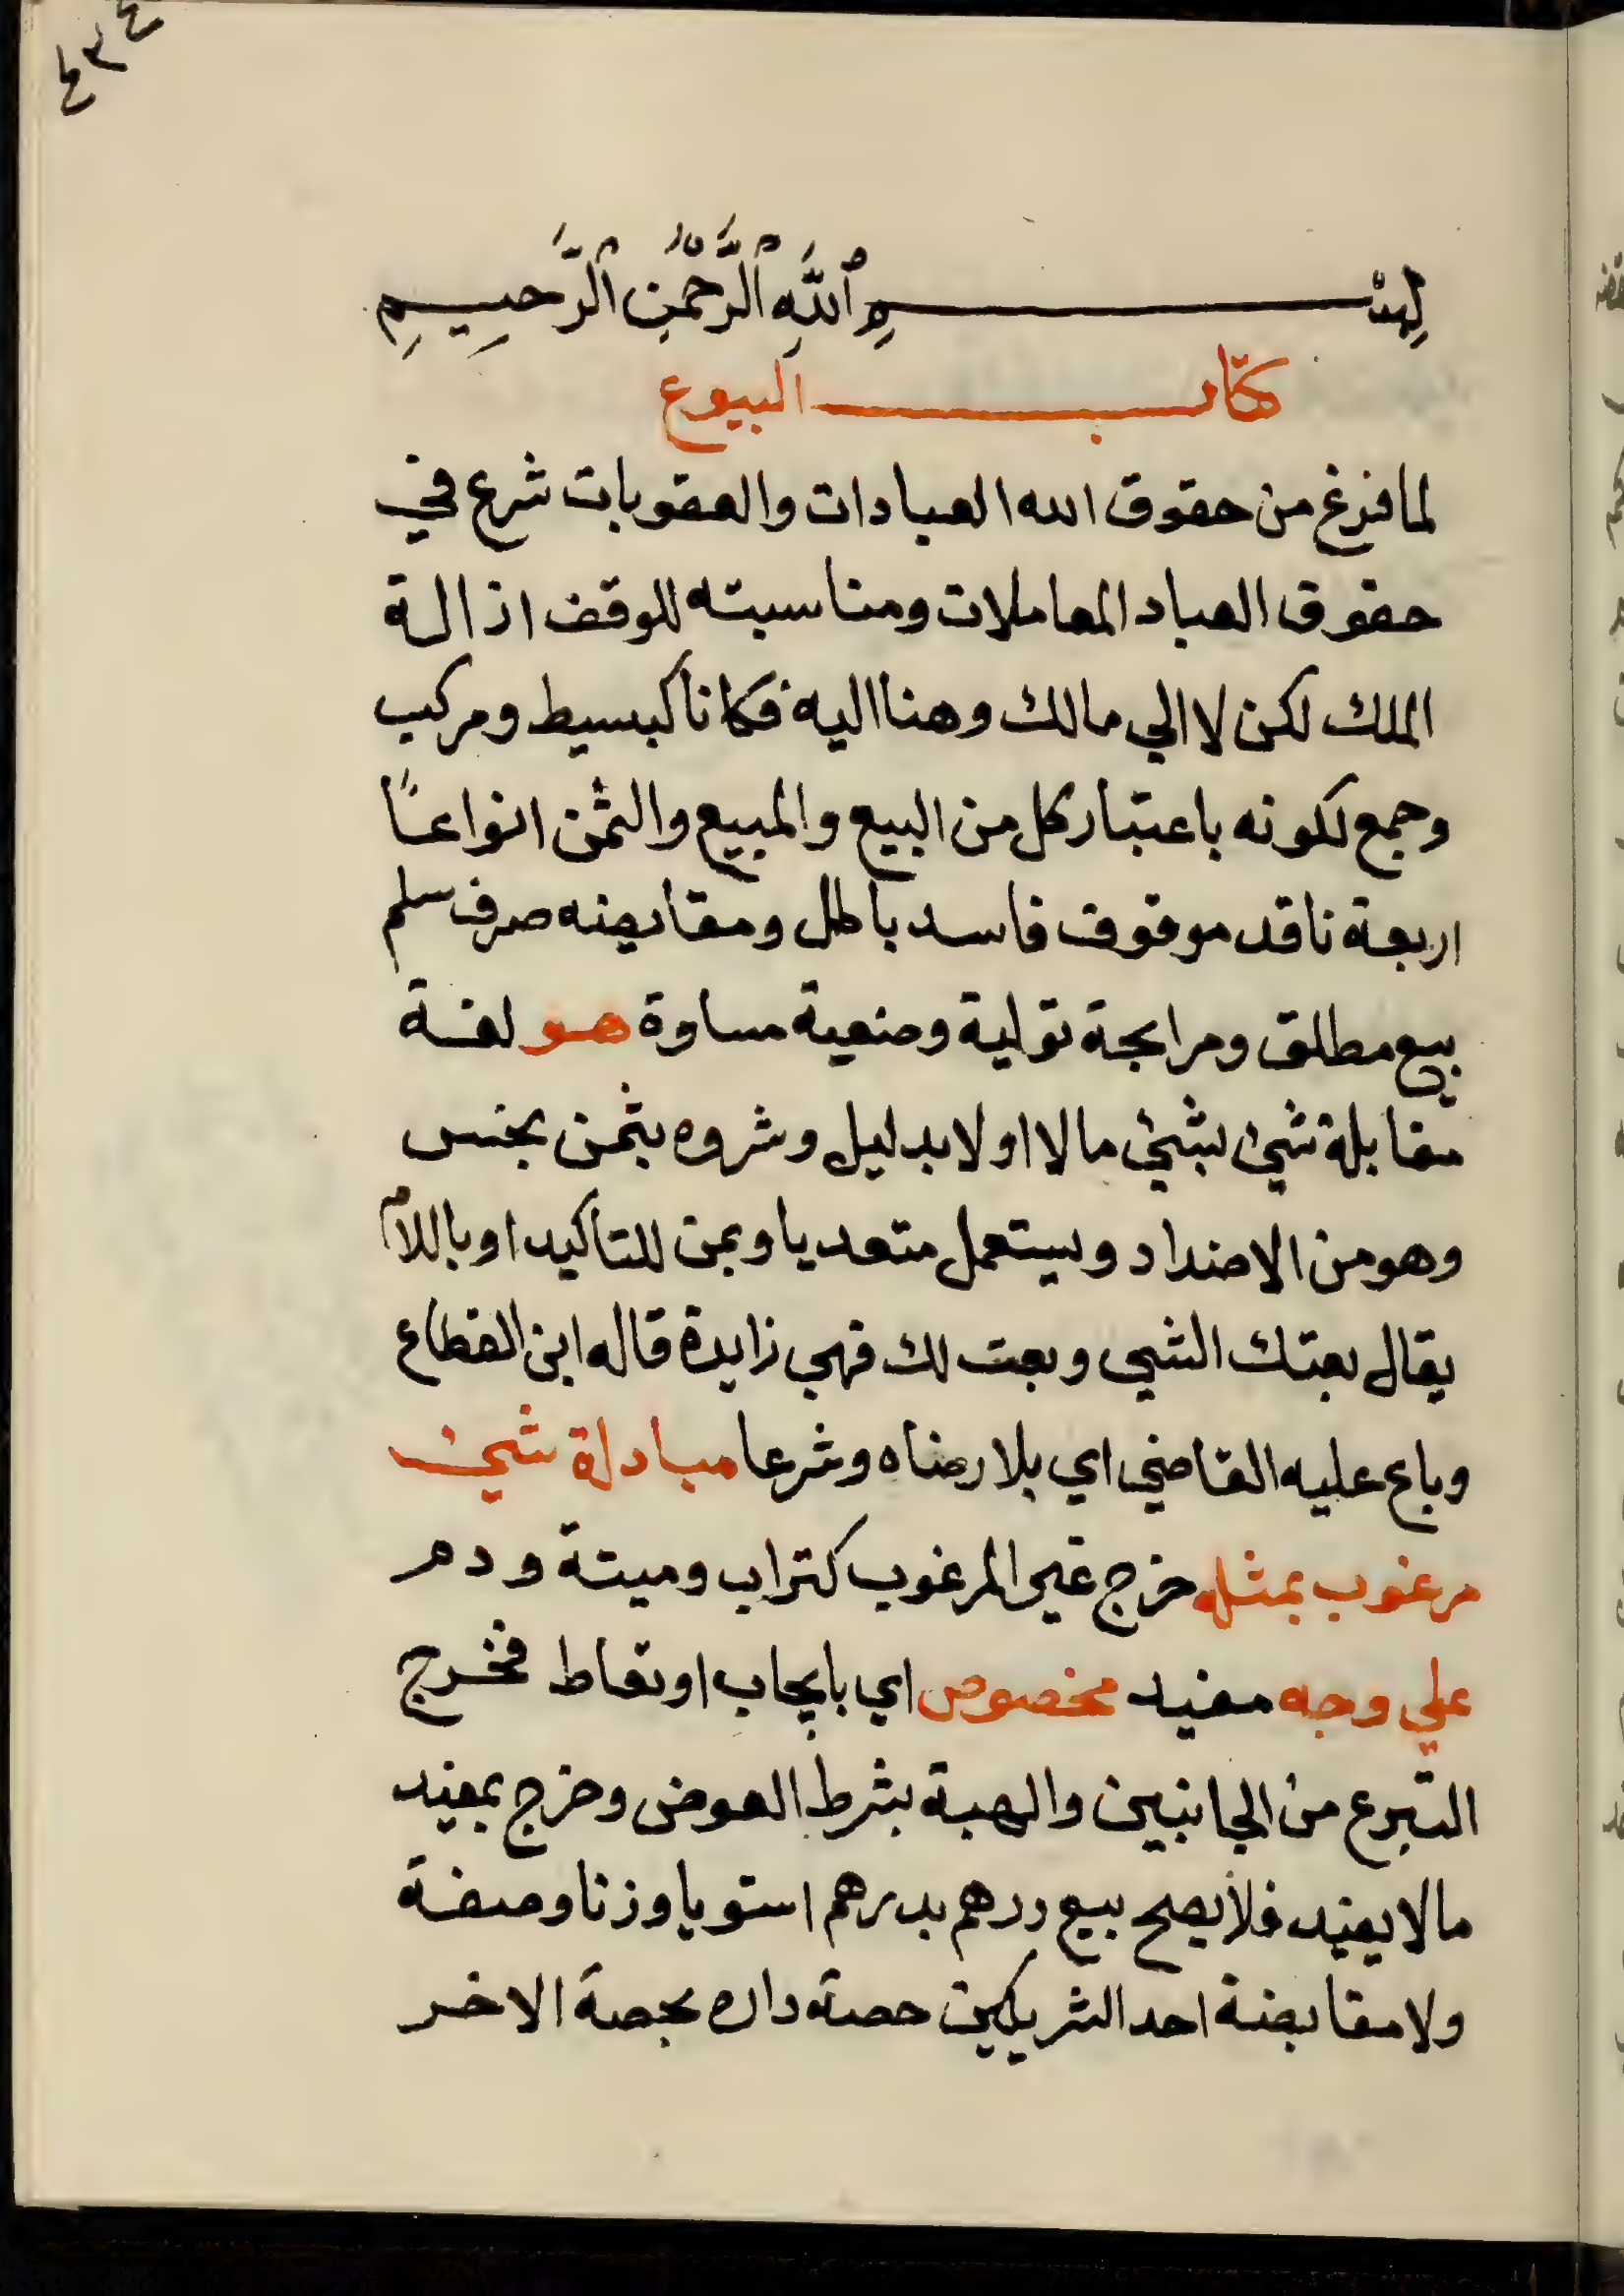 بِسْمِ ٱللَّهِ ٱلرَّحْمٰنِ ٱلرَّحِيمِ
كتاب البيوع
لما فرغ من حقوق الله العبادات والعقوبات شرع في
حقوق العباد المعاملات ومناسبته للوقف ازالة
الملك لكن لا الي مالك وهنا اليه فكانا كبسيط ومركب
وجمع لكونه باعتبار كل من البيع والمبيع والثمن انواعًا
اربعة نافد موقوف فاسد باطل ومقايضه صرف سلم
بيع مطلق ومرابحة تولية وضعية مساوة هو لغة
مقابلة شئ بشئ مالا اولا بدليل وشروه بثمن بخس
وهو من الاضداد ويستعمل متعديا وبمن للتاكيد او باللام
يقال بعتك الشي وبعت لك فهي زايدة قاله ابن القطاع
وباع عليه القاضي اي بلا رضاه وشرعا مبادلة شئ
مرغوب بمثله خرج غير المرغوب كتراب وميتة ودم
علي وجه مفيد مخصوص اي بايجاب او تعاط فخرج
التبرع من الجانبين والهبة بشرط العوض وخرج بمفيد
مالا يفيد فلا يصح بيع درهم بدرهم استويا وزنا وصفة
ولا مقايضة احد الشريكين حصة داره بحصة الاخر